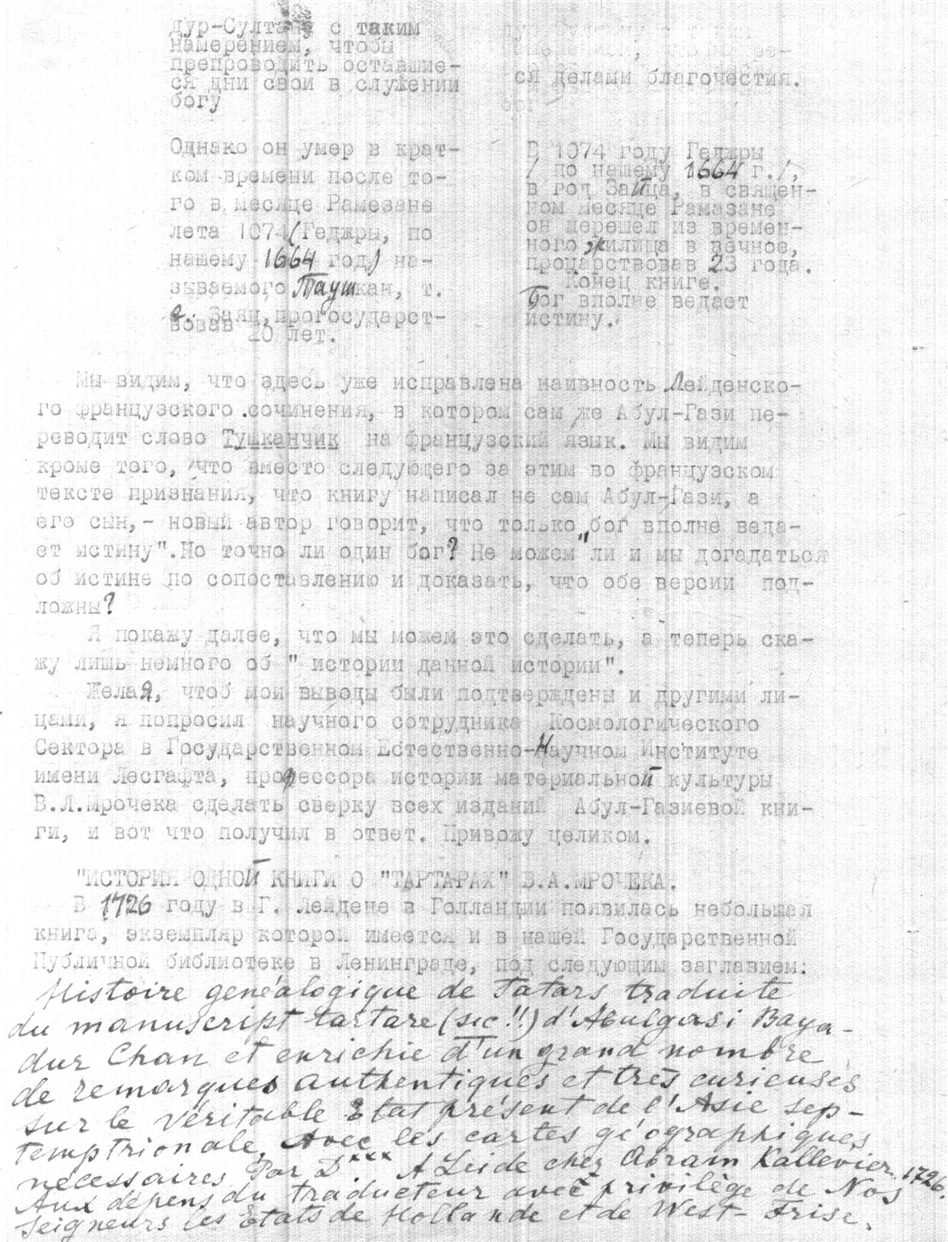 дур-Султану с таким
намерением, чтобы
препроводить оставшие-
ся дни свои в служении
богу
Однако он умер в крат-
ком времени после то-
го в месяце Рамезане
лета 1074 (Геджры, по
нашему 1664 год) на-
зываемого Таушкан, т.
е. Заяц, прогосударст-
вовав 20 лет.
ся делами благочестия.
В 1074 году Геджры
/ по нашему 1664 г./,
в год Зайца, в священ-
ном месяце Рамазане
он перешел из времен-
ного жилища в вечное,
процарствовав 23 года.
Конец книге.
Бог вполне ведает
истину.
Мы видим, что здесь уже исправлена наивность Лейденско-
го французского сочинения, в котором сам же Абул-Гази пе-
реводит слово Тушканчик на французский язык. Мы видим
кроме того, что вместо следующего за этим во французском
тексте признания, что книгу написал не сам Абул-Гази, а
его сын,- новый автор говорит, что только "бог вполне веда-
ет истину". Но точно ли один бог? Не можем ли и мы догадаться
об истине по сопоставлению и доказать, что обе версии под-
ложны?
Я покажу далее, что мы можем это сделать, а теперь ска-
жу лишь немного об " истории данной истории".
Желая, чтоб мои выводы были подтверждены и другими ли-
цами, я попросил научного сотрудника Космологического
Сектора в Государственном Естественно-Научном Институте
имени Лесгафта, профессора истории материальной культуры
В.Л.Мрочека сделать сверку всех изданий Абул-Газиевой кни-
ги, и вот что получил в ответ. Привожу целиком.
"ИСТОРИЯ ОДНОЙ КНИГИ О "ТАРТАРАХ" В.А.МРОЧЕКА.
В 1726 году в Г. Лейдене в Голландии появилась небольшая
книга, экземпляр которой имеется и в нашей Государственной
Публичной библиотеке в Ленинграде, под следующим заглавием:
Histoire genéalogique de Tatars traduite
du manuscript tartare (sic!!) d'Abulgasi Baya-
dur Chan et enrichie d'un grand nombre
de remarques authentiques et très curieuses
sur le véritable Etat présent de l'Asie sep-
temptrionale, Avec les cartes géographiques
necessaires. Par D*** A Leide chez Abram Kallevier 1726
Aux dépens du traducteur avec privilège de Nos
seigneurs les Etats de Hollande et de West-Frise.